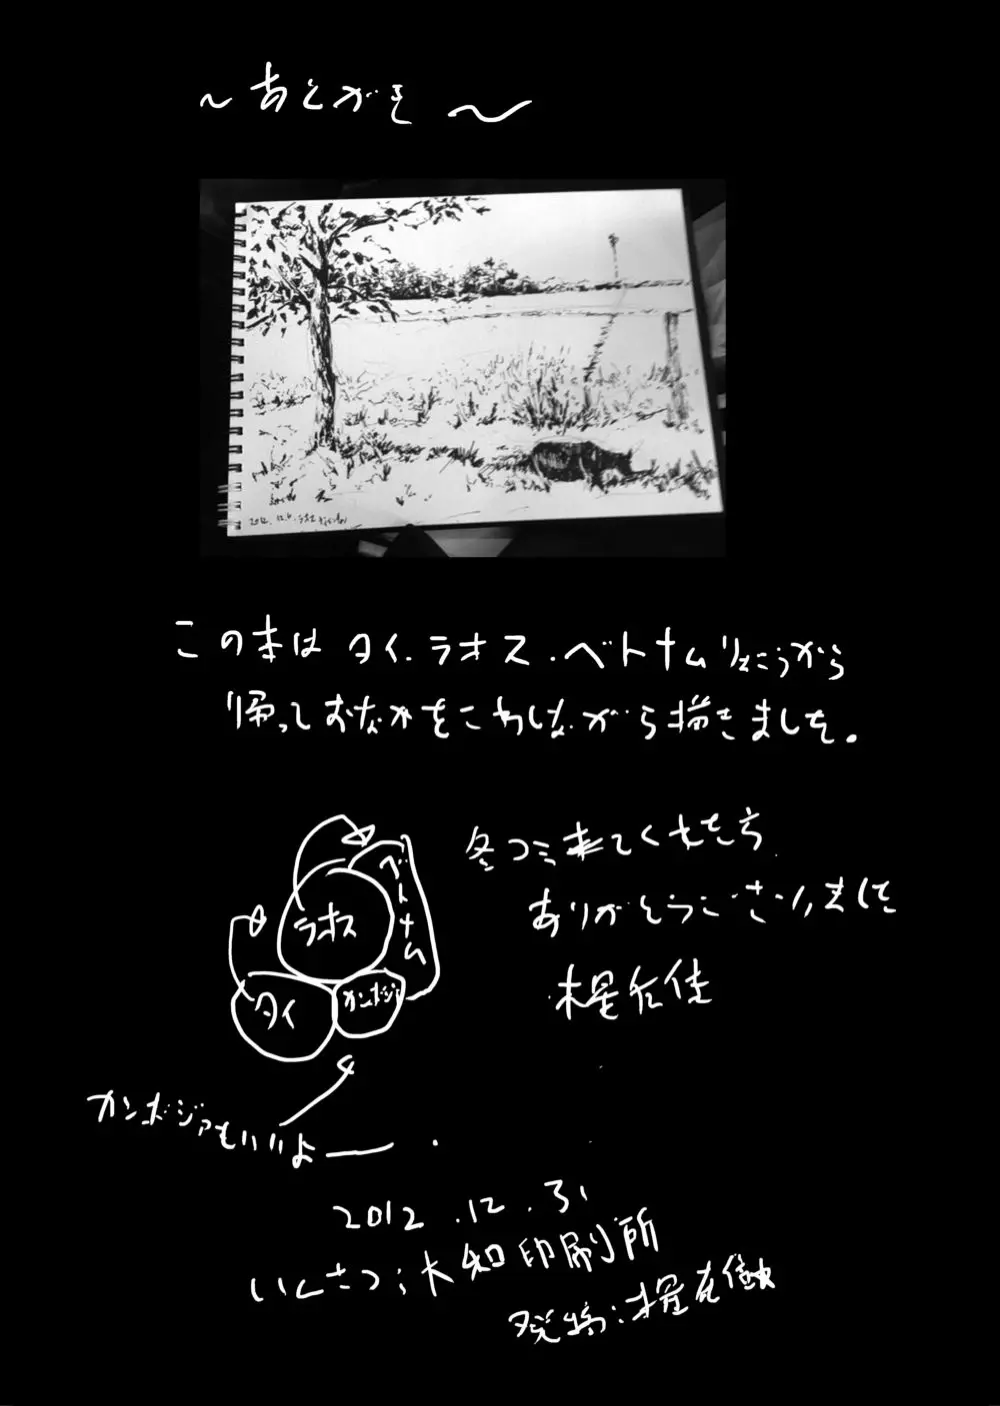 ～あとがき～
2012.12.
この本は タイ.ラオス.ベトナムりょこうから
帰っておなかをこわしながら描きました。
冬コミ来てくれた方
ありがとうございました
ベトナム
ラオス
タイ
カンボジア
カンボジアもいいよー.
2012.12.31
いんさつ:大知印刷所